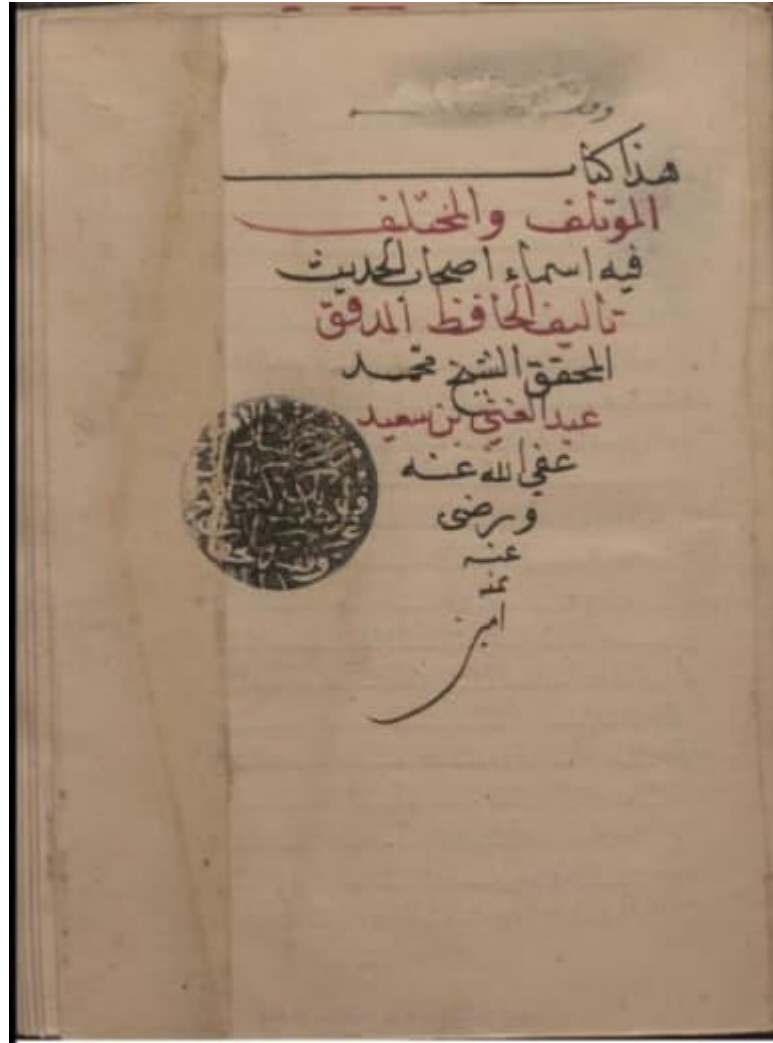 وقف
هذا كتاب
المؤتلف والمختلف
فيه اسماء اصحاب الحديث
تأليف الحافظ المدقق
المحقق الشيخ محمد
عبد الغني بن سعيد
عفي الله عنه
ورضى
عنه
بمنه
امين